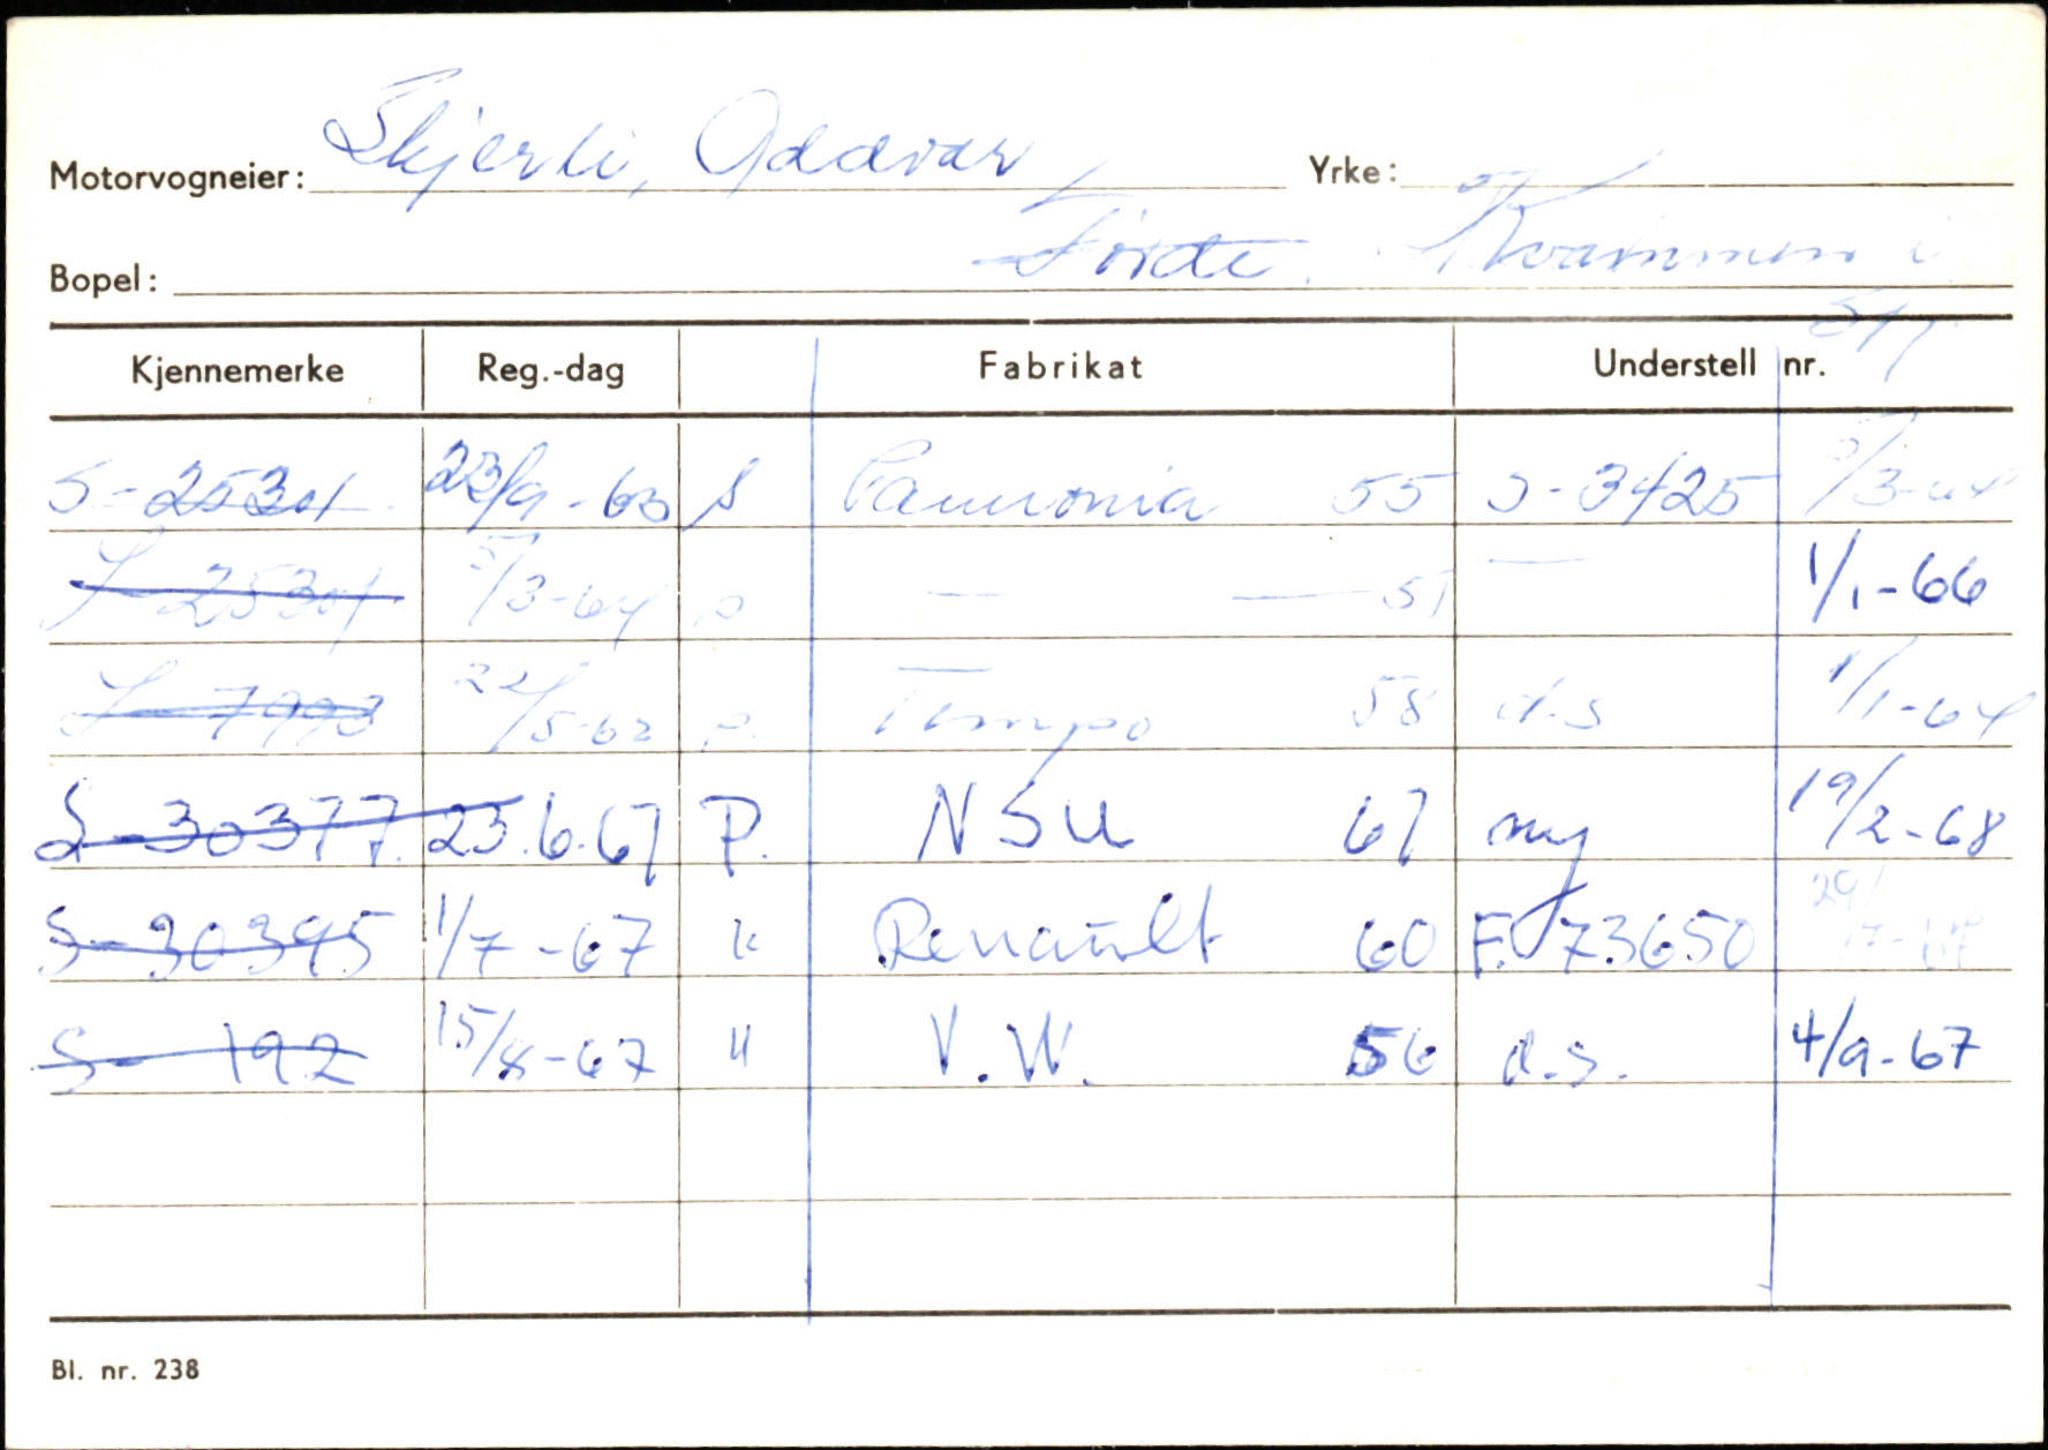 Motorvogneier: Skjerli, Oddvar, Yrke:
Bopel: Førde. Kvammen i
Kjennemerke Reg.-dag Fabrikat Understell nr.
S-25301 23/9-63 S Pannonia 55 S-3425 5/3-64
S-25301 5/3-64 — — 1/1-66
S-7993 22/5-62 Tempo 58 d.s 1/1-64
S-30377 23.6.67 P. NSU 67 ny 19/2-68
S-30395 1/7-67 " Renault 60 73650
S-192 15/8-67 " V.W. 56 d.s. 4/9-67
Bl. nr. 238